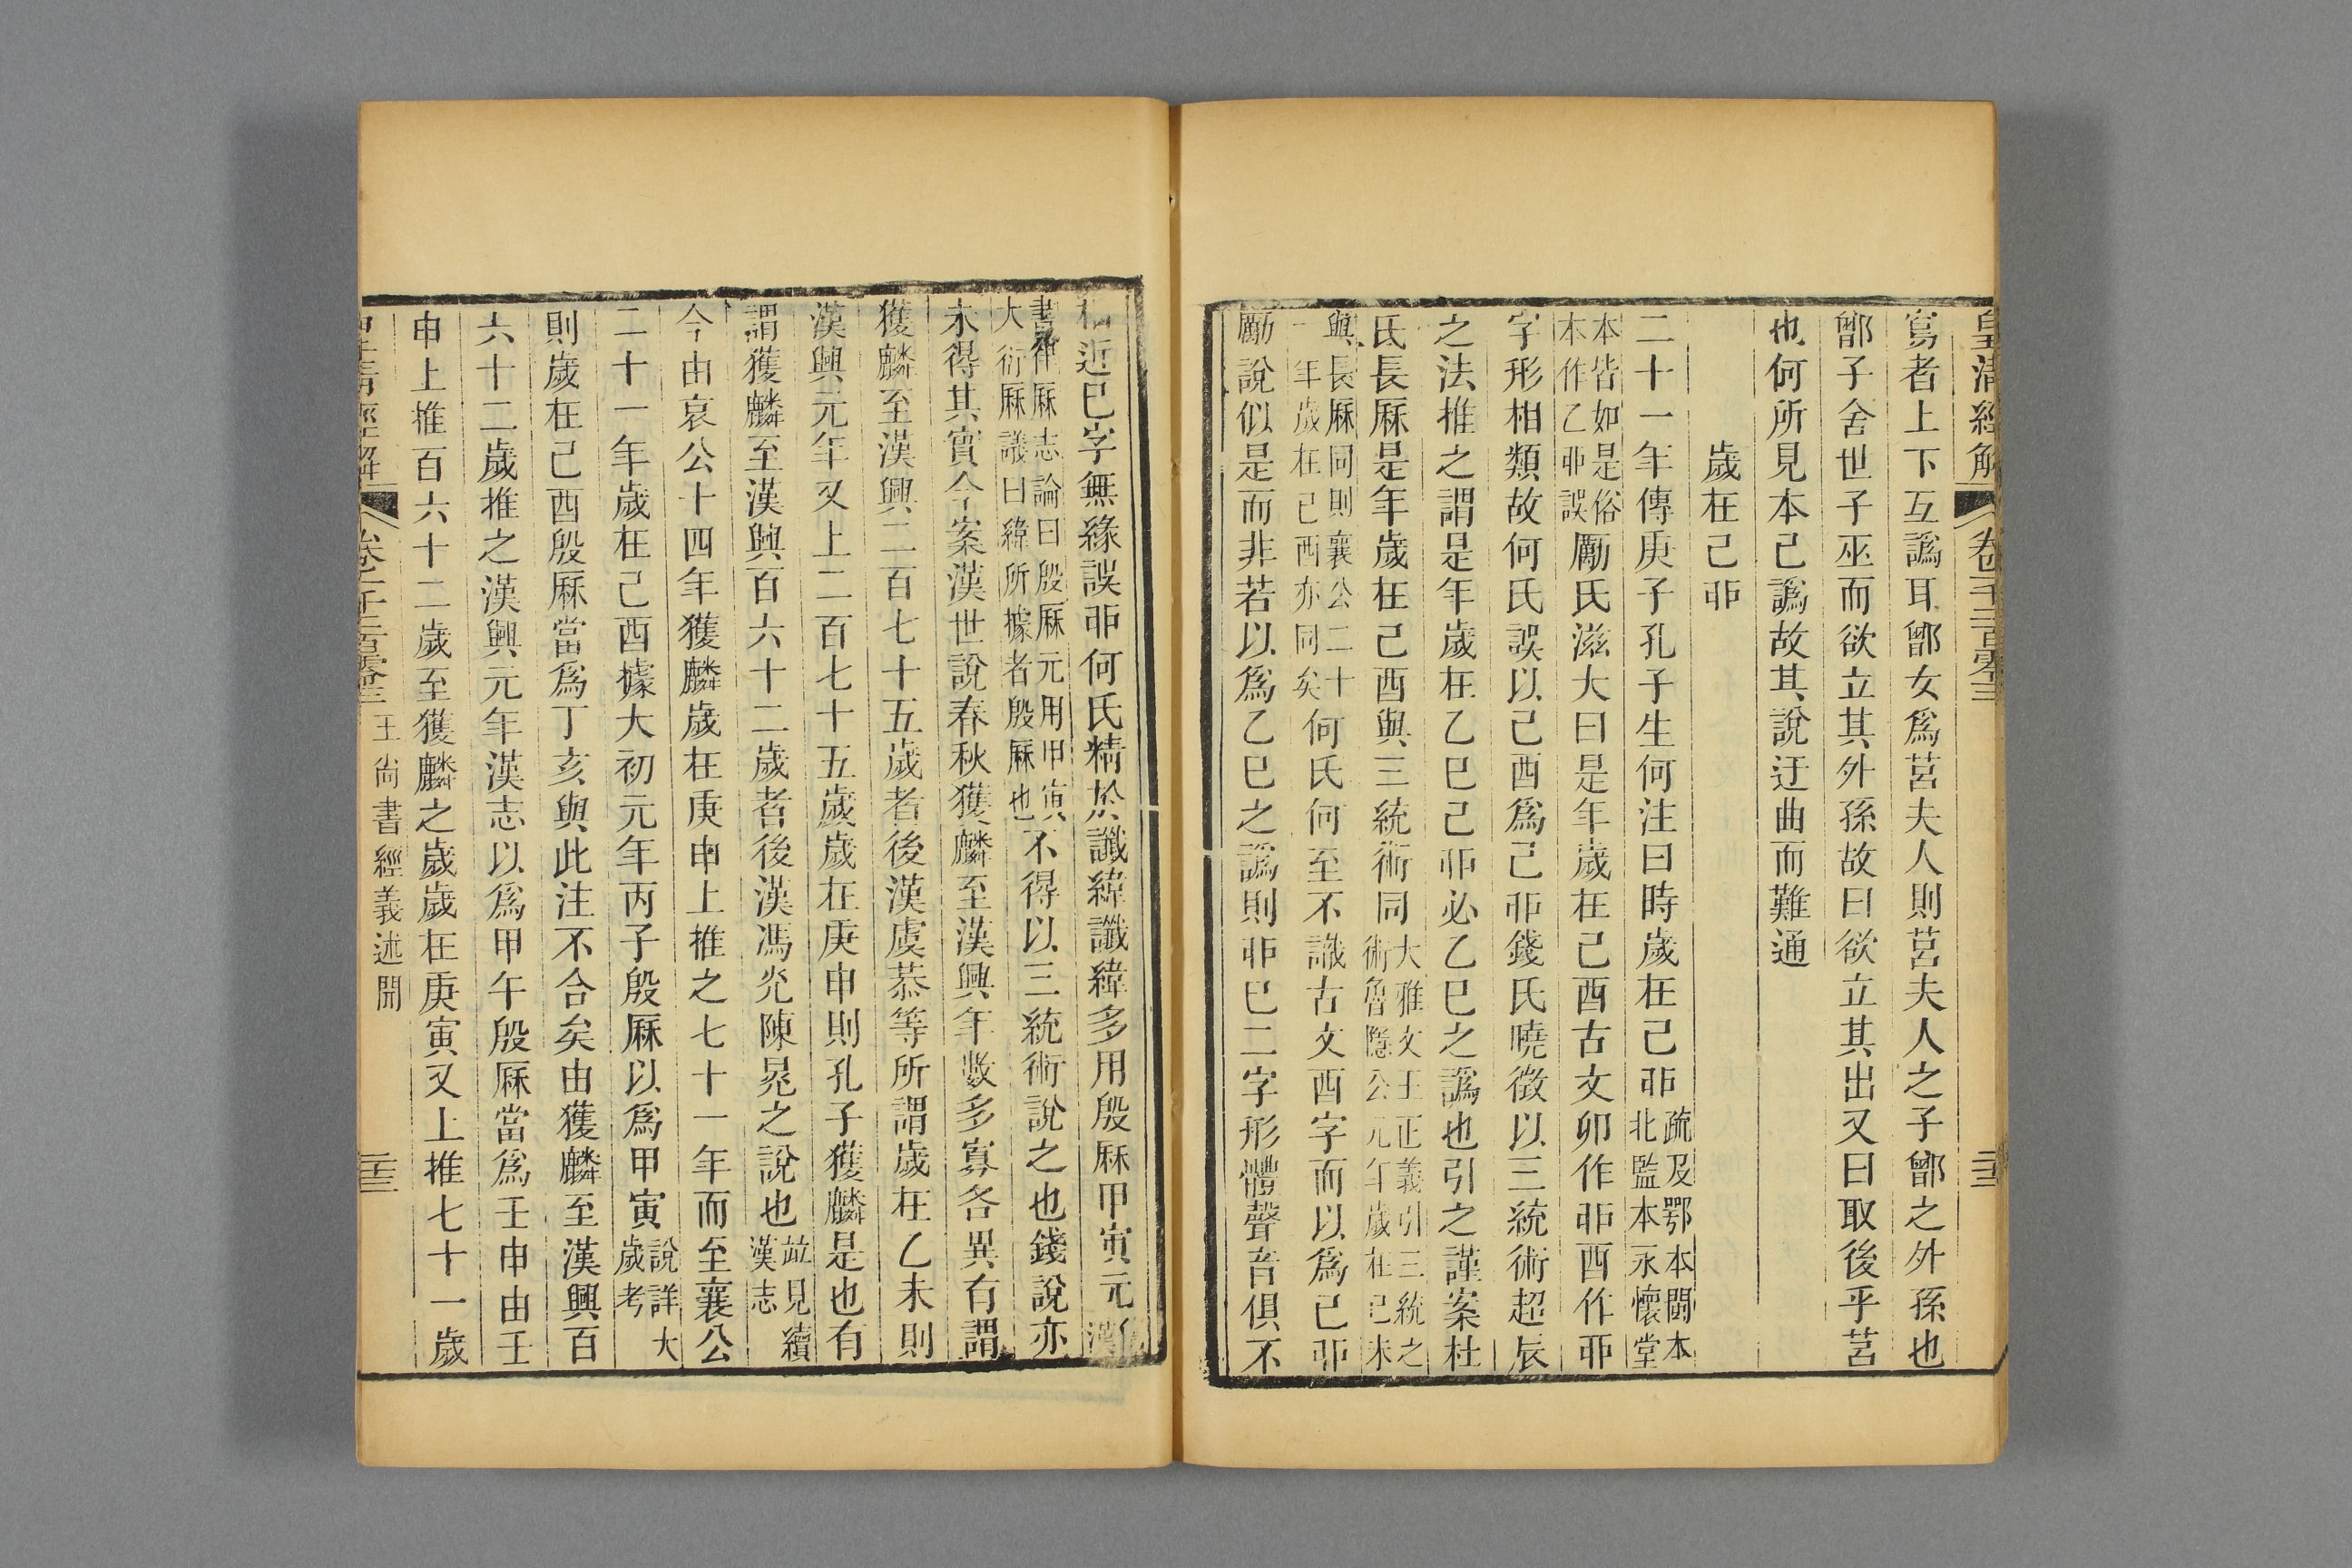 皇清經解 卷一千二百零三 二十三
寫者上下互譌耳鄫女爲莒夫人則莒夫人之子鄫之外孫也
鄫子舍世子巫而欲立其外孫故曰欲立其出又曰取後乎莒
也何所見本已譌故其說迂曲而難通
歲在己戼
二十一年傳庚子孔子生何注曰時歲在己戼疏及鄂本閩本北監本永懷堂
本皆如是俗本作乙戼誤勵氏滋大曰是年歲在己酉古文卯作戼酉作丣
字形相類故何氏誤以己酉爲己戼錢氏曉徵以三統術超辰
之法推之謂是年歲在乙巳己戼必乙巳之譌也引之謹案杜
氏長厤是年歲在己酉與三統術同大雅文王正義引三統之術魯隱公元年歲在己未
與長厤同則襄公二十一年歲在己酉亦同矣何氏何至不識古文酉字而以爲己戼
勵說似是而非若以爲乙巳之譌則戼巳二字形體聲音俱不
相近巳字無緣誤戼何氏精於讖緯讖緯多用殷厤甲寅元續漢
書律厤志論曰殷厤元用甲寅大衍厤議曰緯所據者殷厤也不得以三統術說之也錢說亦
未得其實今案漢世說春秋獲麟至漢興年數多寡各異有謂
獲麟至漢興二百七十五歲者後漢虞恭等所謂歲在乙未則
漢興元年又上二百七十五歲歲在庚申則孔子獲麟是也有
謂獲麟至漢興百六十二歲者後漢馮光陳晃之說也竝見續漢志
今由哀公十四年獲麟歲在庚申上推之七十一年而至襄公
二十一年歲在己酉據大初元年丙子殷厤以爲甲寅說詳大歲考
則歲在己酉殷厤當爲丁亥與此注不合矣由獲麟至漢興百
六十二歲推之漢興元年漢志以爲甲午殷厤當爲壬申由壬
申上推百六十二歲至獲麟之歲歲在庚寅又上推七十一歲
皇清經解 卷一千二百零三 王尚書經義述聞 二十三